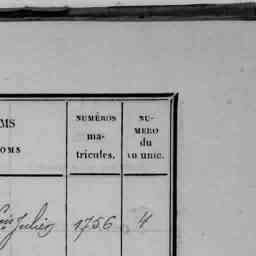 MS
OMS
NUMÉROS
ma-
tricules.
NU-
MERO
du
unic.
Julien 1756 4